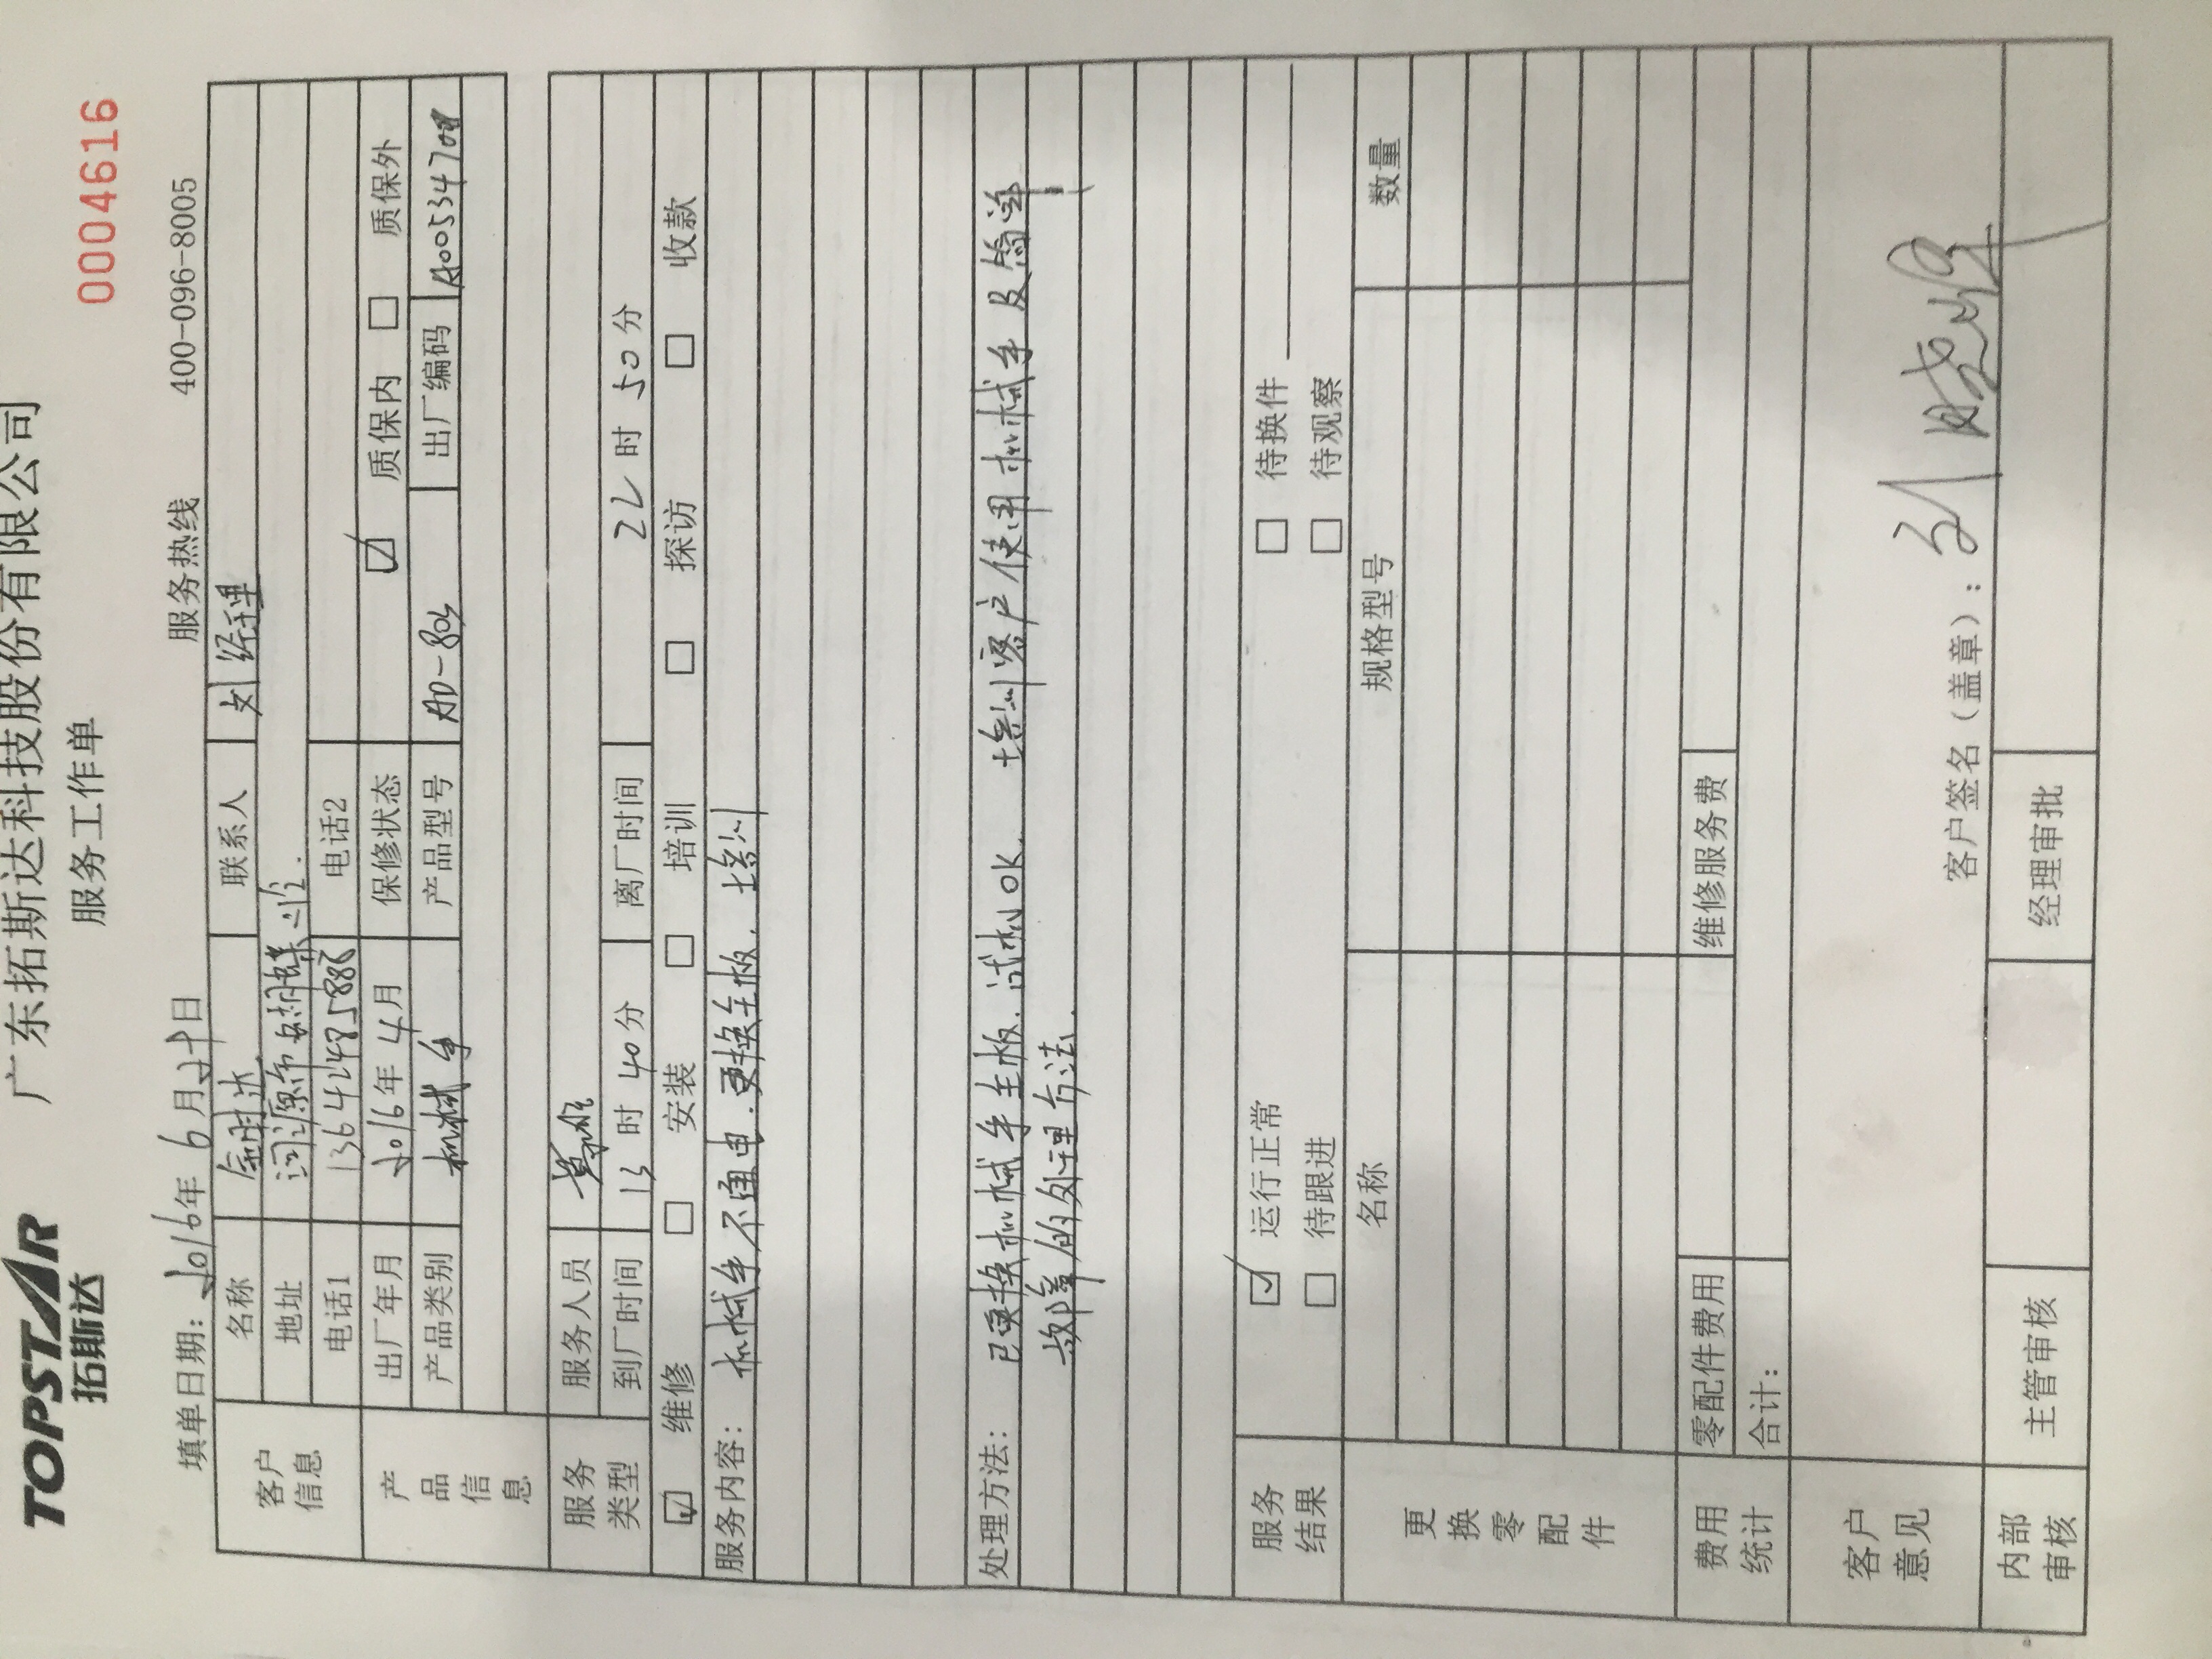 TOPSTAR
拓斯达
广东拓斯达科技股份有限公司
服务工作单
0004616
填单日期：2016年6月 日 服务热线 400-096-8005
客户信息
名称 联系人 刘经理
地址 河源市
电话1 电话2
产品信息
出厂年月 2016年4月 保修状态 ☑ 质保内 □ 质保外
产品类别 机械手 产品型号 出厂编码 A00534708
服务类型
服务人员
到厂时间 13时40分 离厂时间 22时50分
☑ 维修 □ 安装 □ 培训 □ 探访 □ 收款
服务内容： 机械手不通电.更换主板.培训
处理方法： 已更换机械手主板.试机OK. 培训客户使用机械手及
故障的处理方法.
服务结果
☑ 运行正常 □ 待换件
□ 待跟进 □ 待观察
更换零配件
名称 规格型号 数量
费用统计
零配件费用 维修服务费
合计：
客户意见
客户签名（盖章）：
内部审核
主管审核 经理审批